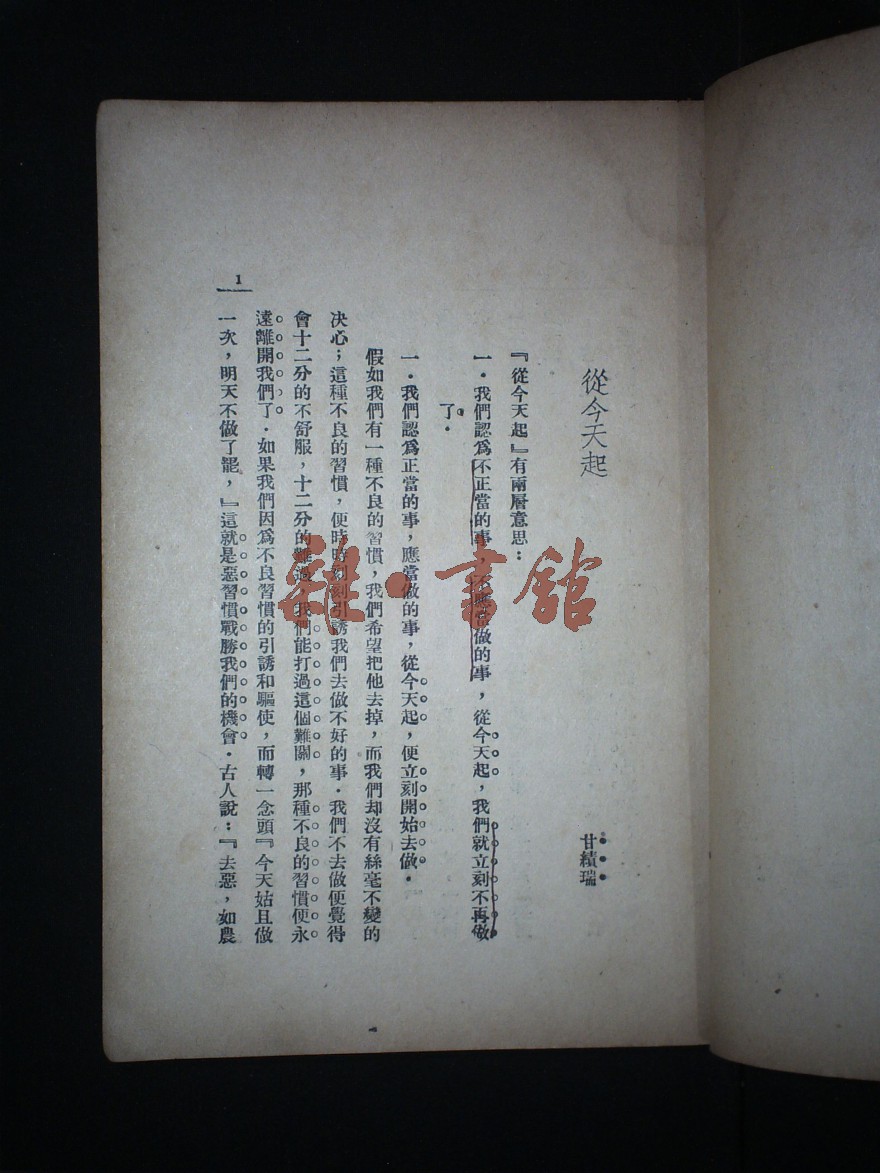 從今天起
甘績瑞
『從今天起』有兩層意思：
一．我們認爲不正當的事，不應當做的事，從今天起，我們就立刻不再做
了．
一．我們認爲正當的事，應當做的事，從今天起，便立刻開始去做．
假如我們有一種不良的習慣，我們希望把他去掉，而我們却沒有絲毫不變的
決心；這種不良的習慣，便時時刻刻引誘我們去做不好的事．我們不去做便覺得
會十二分的不舒服，十二分的難過，我們能打過這個難關，那種不良的習慣便永
遠離開我們了．如果我們因爲不良習慣的引誘和驅使，而轉一念頭『今天姑且做
一次，明天不做了罷，』這就是惡習慣戰勝我們的機會．古人說：『去惡，如農
1
雜·書館